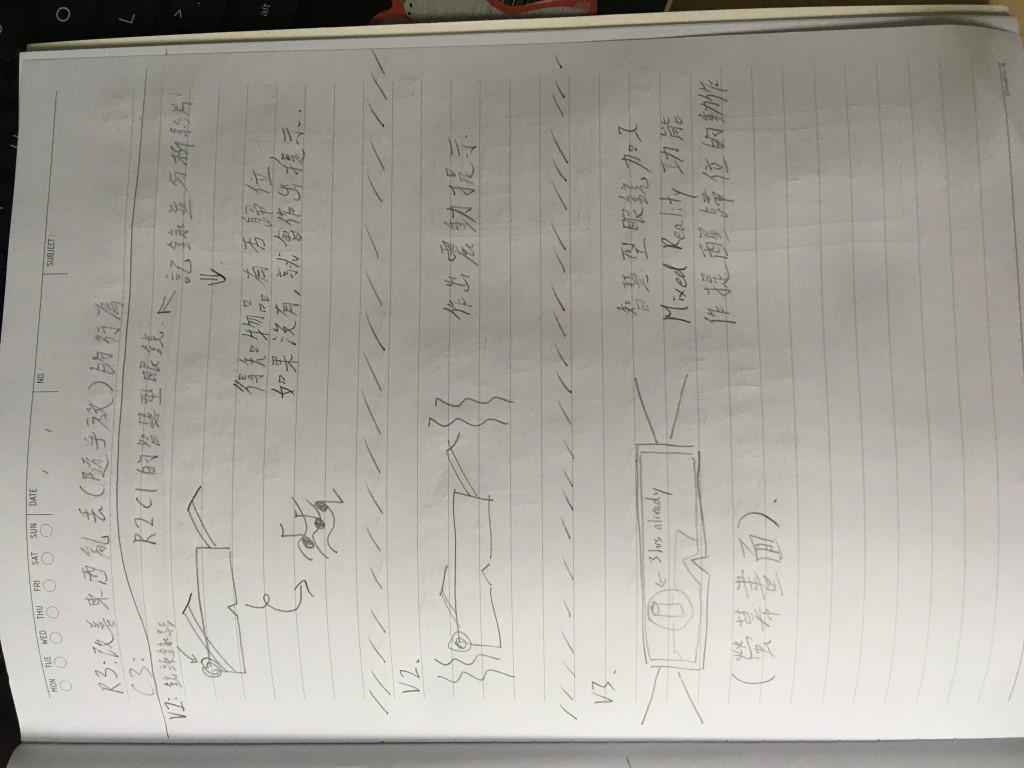 MON TUE WED THU FRI SAT SUN DATE / / NO. SUBJECT:
R3:改善東西亂丟(隨手放)的行為
C3:
R2C1的智慧型眼鏡.
V1: 鏡頭錄影
記錄並分析影片
得知物品有否歸位,
如果沒有,就會作出提示..
V2.
作出震動提示.
V3.
3 hrs already
智慧型眼鏡加入
Mixed Reality 功能
作提醒歸位的動作.
(螢幕畫面).
alt